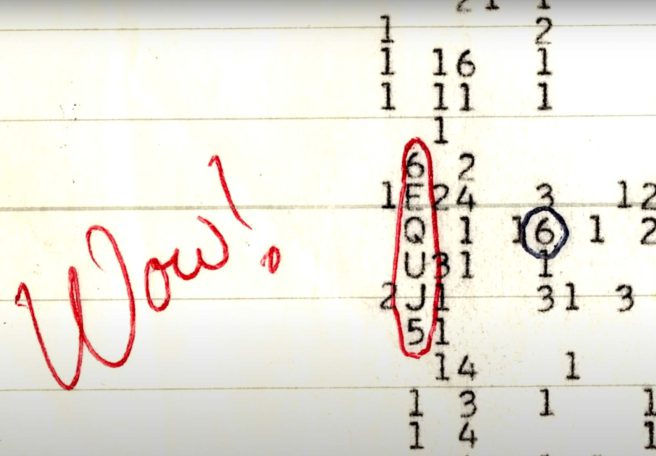 1 2
1 16 1
1 11 1
1
6 2
1 E 24 3 12
Q 1 16 1 2
U 31 1
2 J 1 31 3
51
14 1
1 3 1 1
1 4 1
Wow!